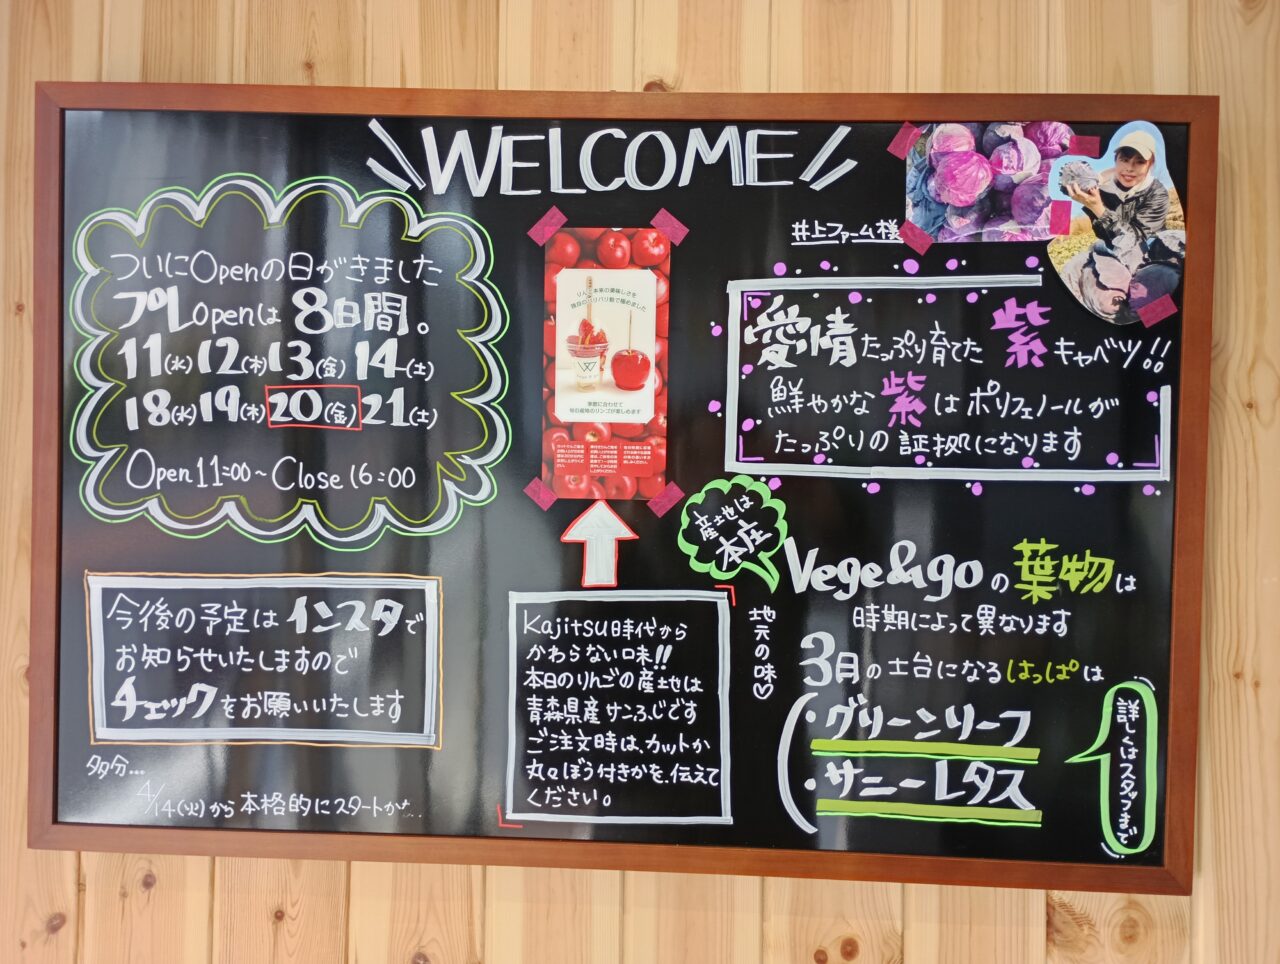 WELCOME
ついにOpenの日がきました
プレOpenは 8日間。
11(水) 12(木) 13(金) 14(土)
18(水) 19(木) 20(金) 21(土)
Open 11:00～Close 16:00
今後の予定は インスタで
お知らせいたしますので
チェックをお願いいたします
多分…
4/14(火)から本格的にスタートかな…
りんご本来の美味しさを
独自のパリパリ飴で極めました
季節に合わせて
旬の産地のリンゴが楽しめます
Kajitsu時代から
かわらない味!!
本日のりんごの産地は
青森県産サンふじです
ご注文時は、カットか
丸々ぼう付きかを、伝えて
ください。
井上ファーム様
愛情たっぷり育てた 紫キャベツ!!
鮮やかな紫はポリフェノールが
たっぷりの証拠になります
産地は
本庄
地元の味♡
Vege&goの葉物は
時期によって異なります
3月の土台になるはっぱは
・グリーンリーフ
・サニーレタス
詳しくはスタッフまで